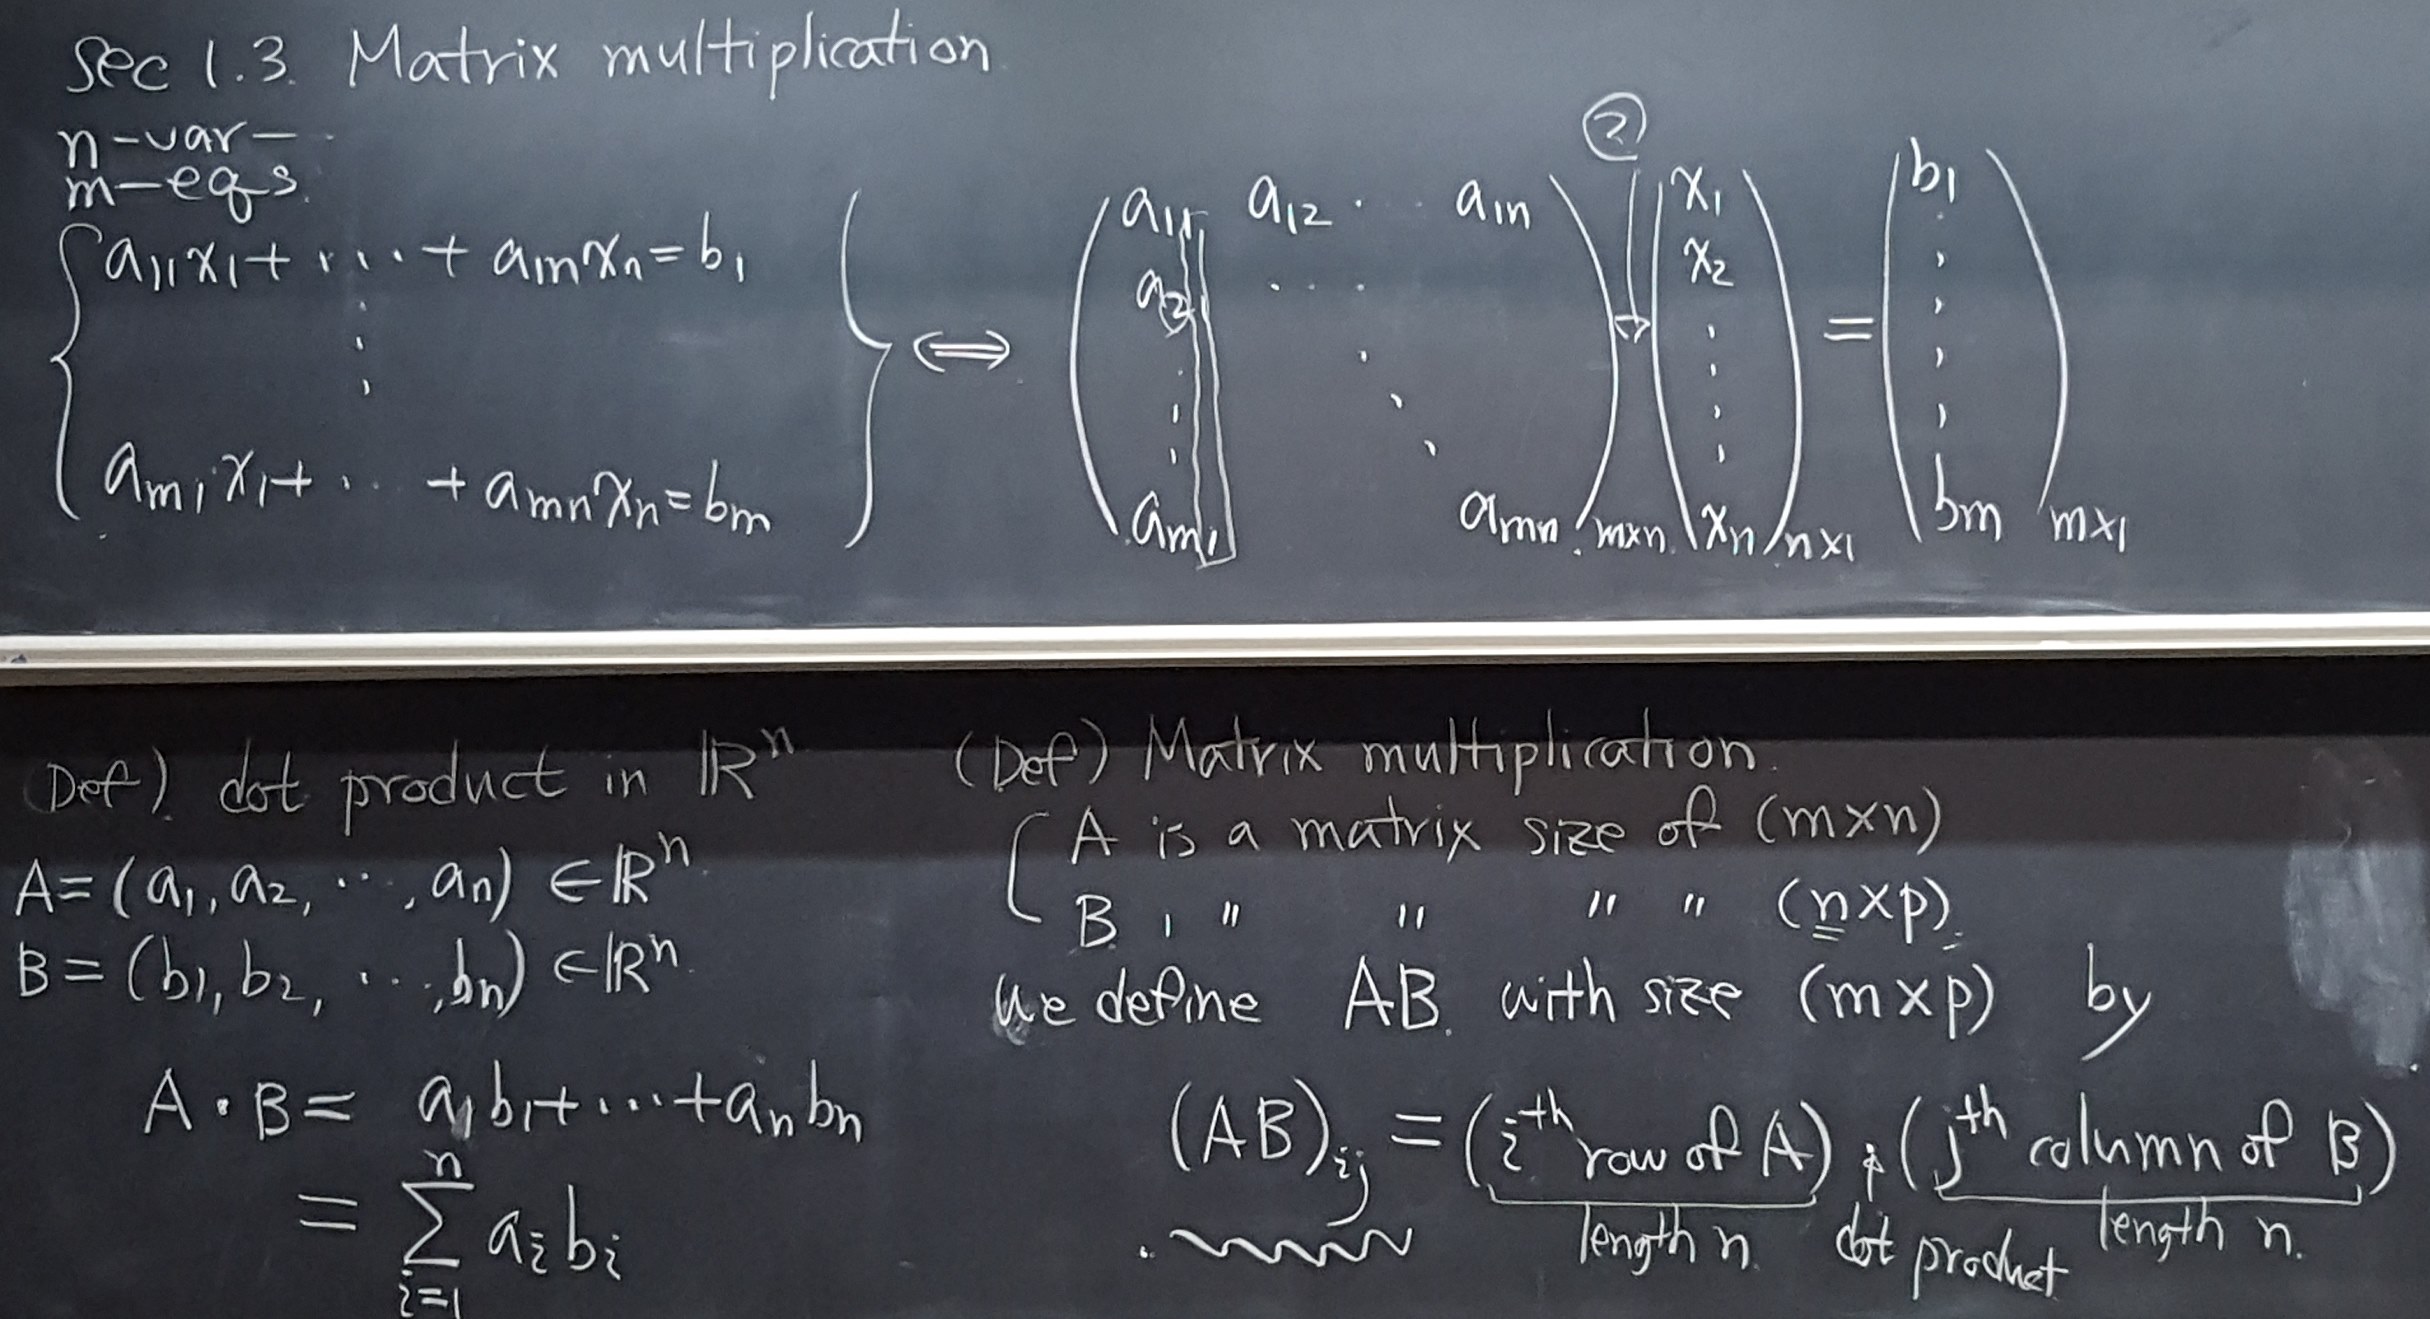 Sec 1.3. Matrix multiplication
n-var-
m-eqs.
a₁₁x₁+ ⋯ + a₁ₙxₙ=b₁
⋮
aₘ₁x₁+ ⋯ + aₘₙxₙ=bₘ
⇔
②
( a₁₁ a₁₂ ⋯ a₁ₙ ) ( x₁ ) = ( b₁ )
( a₂ ⋯ ) ( x₂ ) ( ⋮ )
( ⋮ ⋱ ) ( ⋮ ) ( ⋮ )
( aₘ₁ aₘₙ ) m×n ( xₙ ) n×1 ( bₘ ) m×1
Def). dot product in ℝⁿ
A=(a₁, a₂, ⋯, aₙ) ∈ ℝⁿ
B=(b₁, b₂, ⋯, bₙ) ∈ ℝⁿ
A·B= a₁b₁+⋯+aₙbₙ
n
= Σ aᵢbᵢ
i=1
(Def) Matrix multiplication.
A is a matrix size of (m×n)
B 〃 〃 〃 〃 (n×p).
We define AB. with size (m×p) by
(AB)ᵢⱼ = (iᵗʰ row of A) · (jᵗʰ column of B)
length n dot product length n.